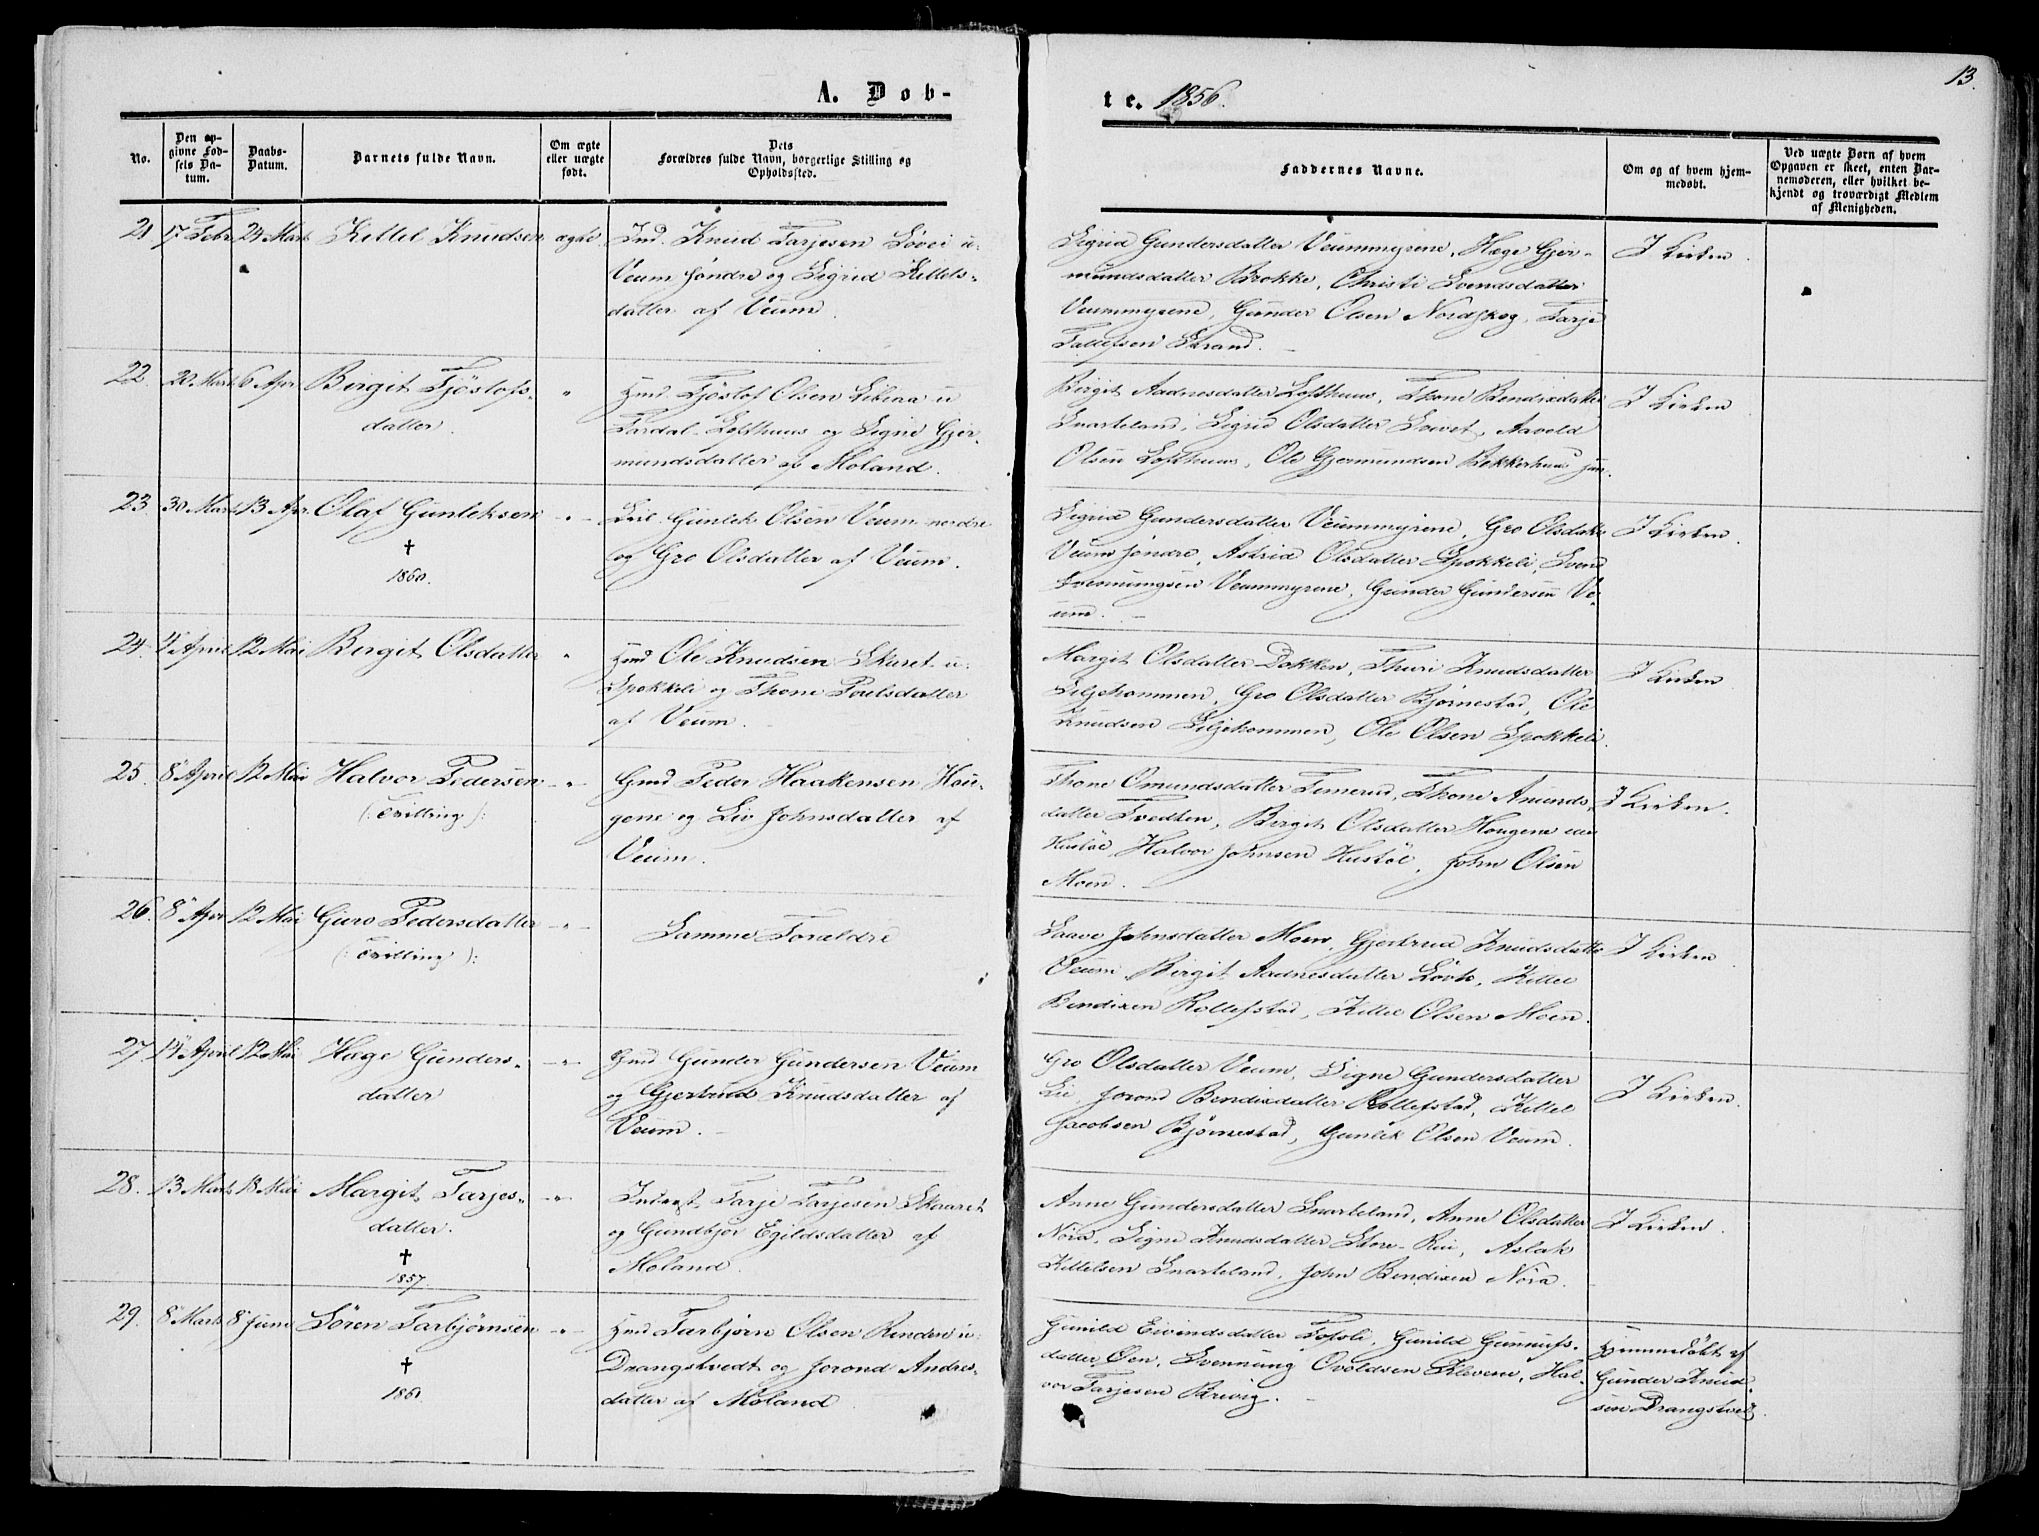 13.
A. Døb-
te. 1856.
No.
Den op-
givne Fød-
sels Da-
tum.
Daabs-
Datum.
Barnets fulde Navn.
Om ægte
eller uægte
født.
Dets
Forældres fulde Navn, borgerlige Stilling og
Opholdssted.
Faddernes Navne.
Om og af hvem hjem-
medøbt.
Ved uægte Børn af hvem
Opgaven er skeet, enten Bar-
nemoderen, eller hvilket be-
kjendt og troværdigt Medlem
af Menigheden.
21 17 Febr 24 Marts Kittel Knudsen ægte
Ind. Knud Tarjesen Løvei u:
Veum søndre og Sigrid Kittels-
datter af Veum.
Sigrid Gundersdatter Veummyrene, Hæge Gjer-
mundsdatter Brokke, Christi Svendsdatter
Veummyrene, Gunder Olsen Nordskog, Tarje
Tallefsen Strand.
I Kirken.
22. 20 Marts 6 Apr. Birgit Tjøstofs-
datter.
Hmd. Tjøstof Olsen Libraa u
Tardal-Lofthuus og Signe Gjer-
mundsdatter af Moland.
Birgit Aadnesdatter Lofthuus, Thone Bendixdatter
Snarteland, Sigrid Olsdatter Tveet, Aavold
Olsen Lofthuus, Ole Gjermundsen Bakkerhuus jun.
I Kirken
23 30 Marts 13 Apr. Olaf Gunleksen
†
1860.
Gunlek Olsen Veum nordre
og Gro Olsdatter af Veum.
Sigrid Gundersdatter Veummyrene, Gro Olsdatter
Veum søndre, Astrid Olsdatter Spokkeli, Svend
Tveonungsen Veummyrene, Gunder Gundersen Ve-
um.
I Kirken.
24. 4 April 12 Mai Birgit Olsdatter
Hmd Ole Knudsen Skeret u:
Spokkeli og Thone Poulsdatter
af Veum.
Margit Olsdatter Dokken, Thuri Knudsdatter
Liljehommen, Gro Olsdatter Bjørnestad, Ole
Knudsen Liljehommen, Ole Olsen Spokkeli.
I Kirken
25. 8 April 12 Mai Halvor Pedersen
(: Tvilling :)
Gmd Peder Haakensen Hou-
gene og Liv Johnsdatter af
Veum.
Thone Omundsdatter Temerud, Thone Amunds-
datter Tvedten, Birgit Olsdatter Hougene
Hustøl, Halvor Johnsen Hustøl, John Olsen
Moen.
I Kirken.
26. 8 Apr 12 Mai Guro Pedersdatter
(: Tvilling :)
Samme Forældre
Saave Johnsdatter Moen, Gjertrud Knudsdatter
Veum, Birgit Aadnesdatter Løvli, Kittel
Bendixen Rollefstad, Kittel Olsen Moen.
I Kirken
27. 14 April 12 Mai Hæge Gunders-
datter
Gmd Gunder Gundersen Veum
og Gjertrud Knudsdatter af
Veum.
Gro Olsdatter Veum, Signe Gundersdatter
Lie, Jorond Bendixdatter Rollefstad, Kittel
Jacobsen Bjørnestad, Gunlek Olsen Veum.
I Kirken.
28. 13 Marts 18 Mai Margit Tarjes-
datter.
†
1857.
Tarje Tarjesen Skaaret
og Gundbjør Egildsdatter af
Moland.
Anne Gundersdatter Snarteland, Anne Olsdatter
Nora, Signe Knudsdatter Store-Rui, Aslak
Kittelsen Snarteland, John Bendixen Nora.
I Kirken.
29. 8 Marts 8 Juni Søren Tarbjørnsen
†
1860.
Hmd Tarbjørn Olsen Renden u:
Drangstvedt og Jorond Andres-
datter af Moland
Gunild Eivindsdatter Fosoli, Gunild Gunnufs-
datter Øen, Svennung Ovoldsen Klevene, Hal-
vor Tarjesen Brevig.
Hjemmedøbt af
Gunder Knud-
sen Drangstvedt.